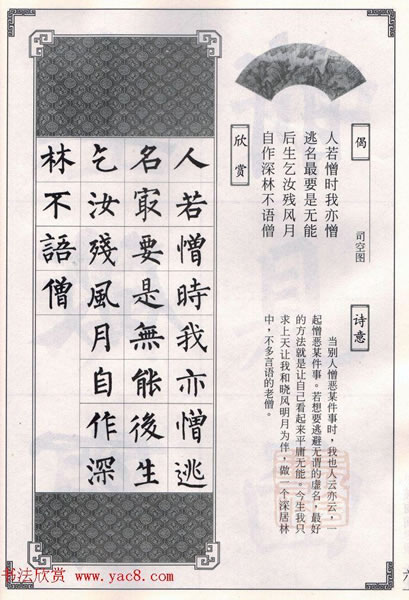 偈
司空图
人若憎时我亦憎
逃名最要是无能
后生乞汝残风月
自作深林不语僧
欣赏
诗意
当别人憎恶某件事时，我也人云亦云，一
起憎恶某件事。若想要逃避无谓的虚名，最好
的方法就是让自己看起来平庸无能。今生我只
求上天让我和晓风明月为伴，做一个深居林
中，不多言语的老僧。
人若憎時我亦憎逃
名冣要是無能後生
乞汝殘風月自作深
林不語僧
书法欣赏 www.yac8.com